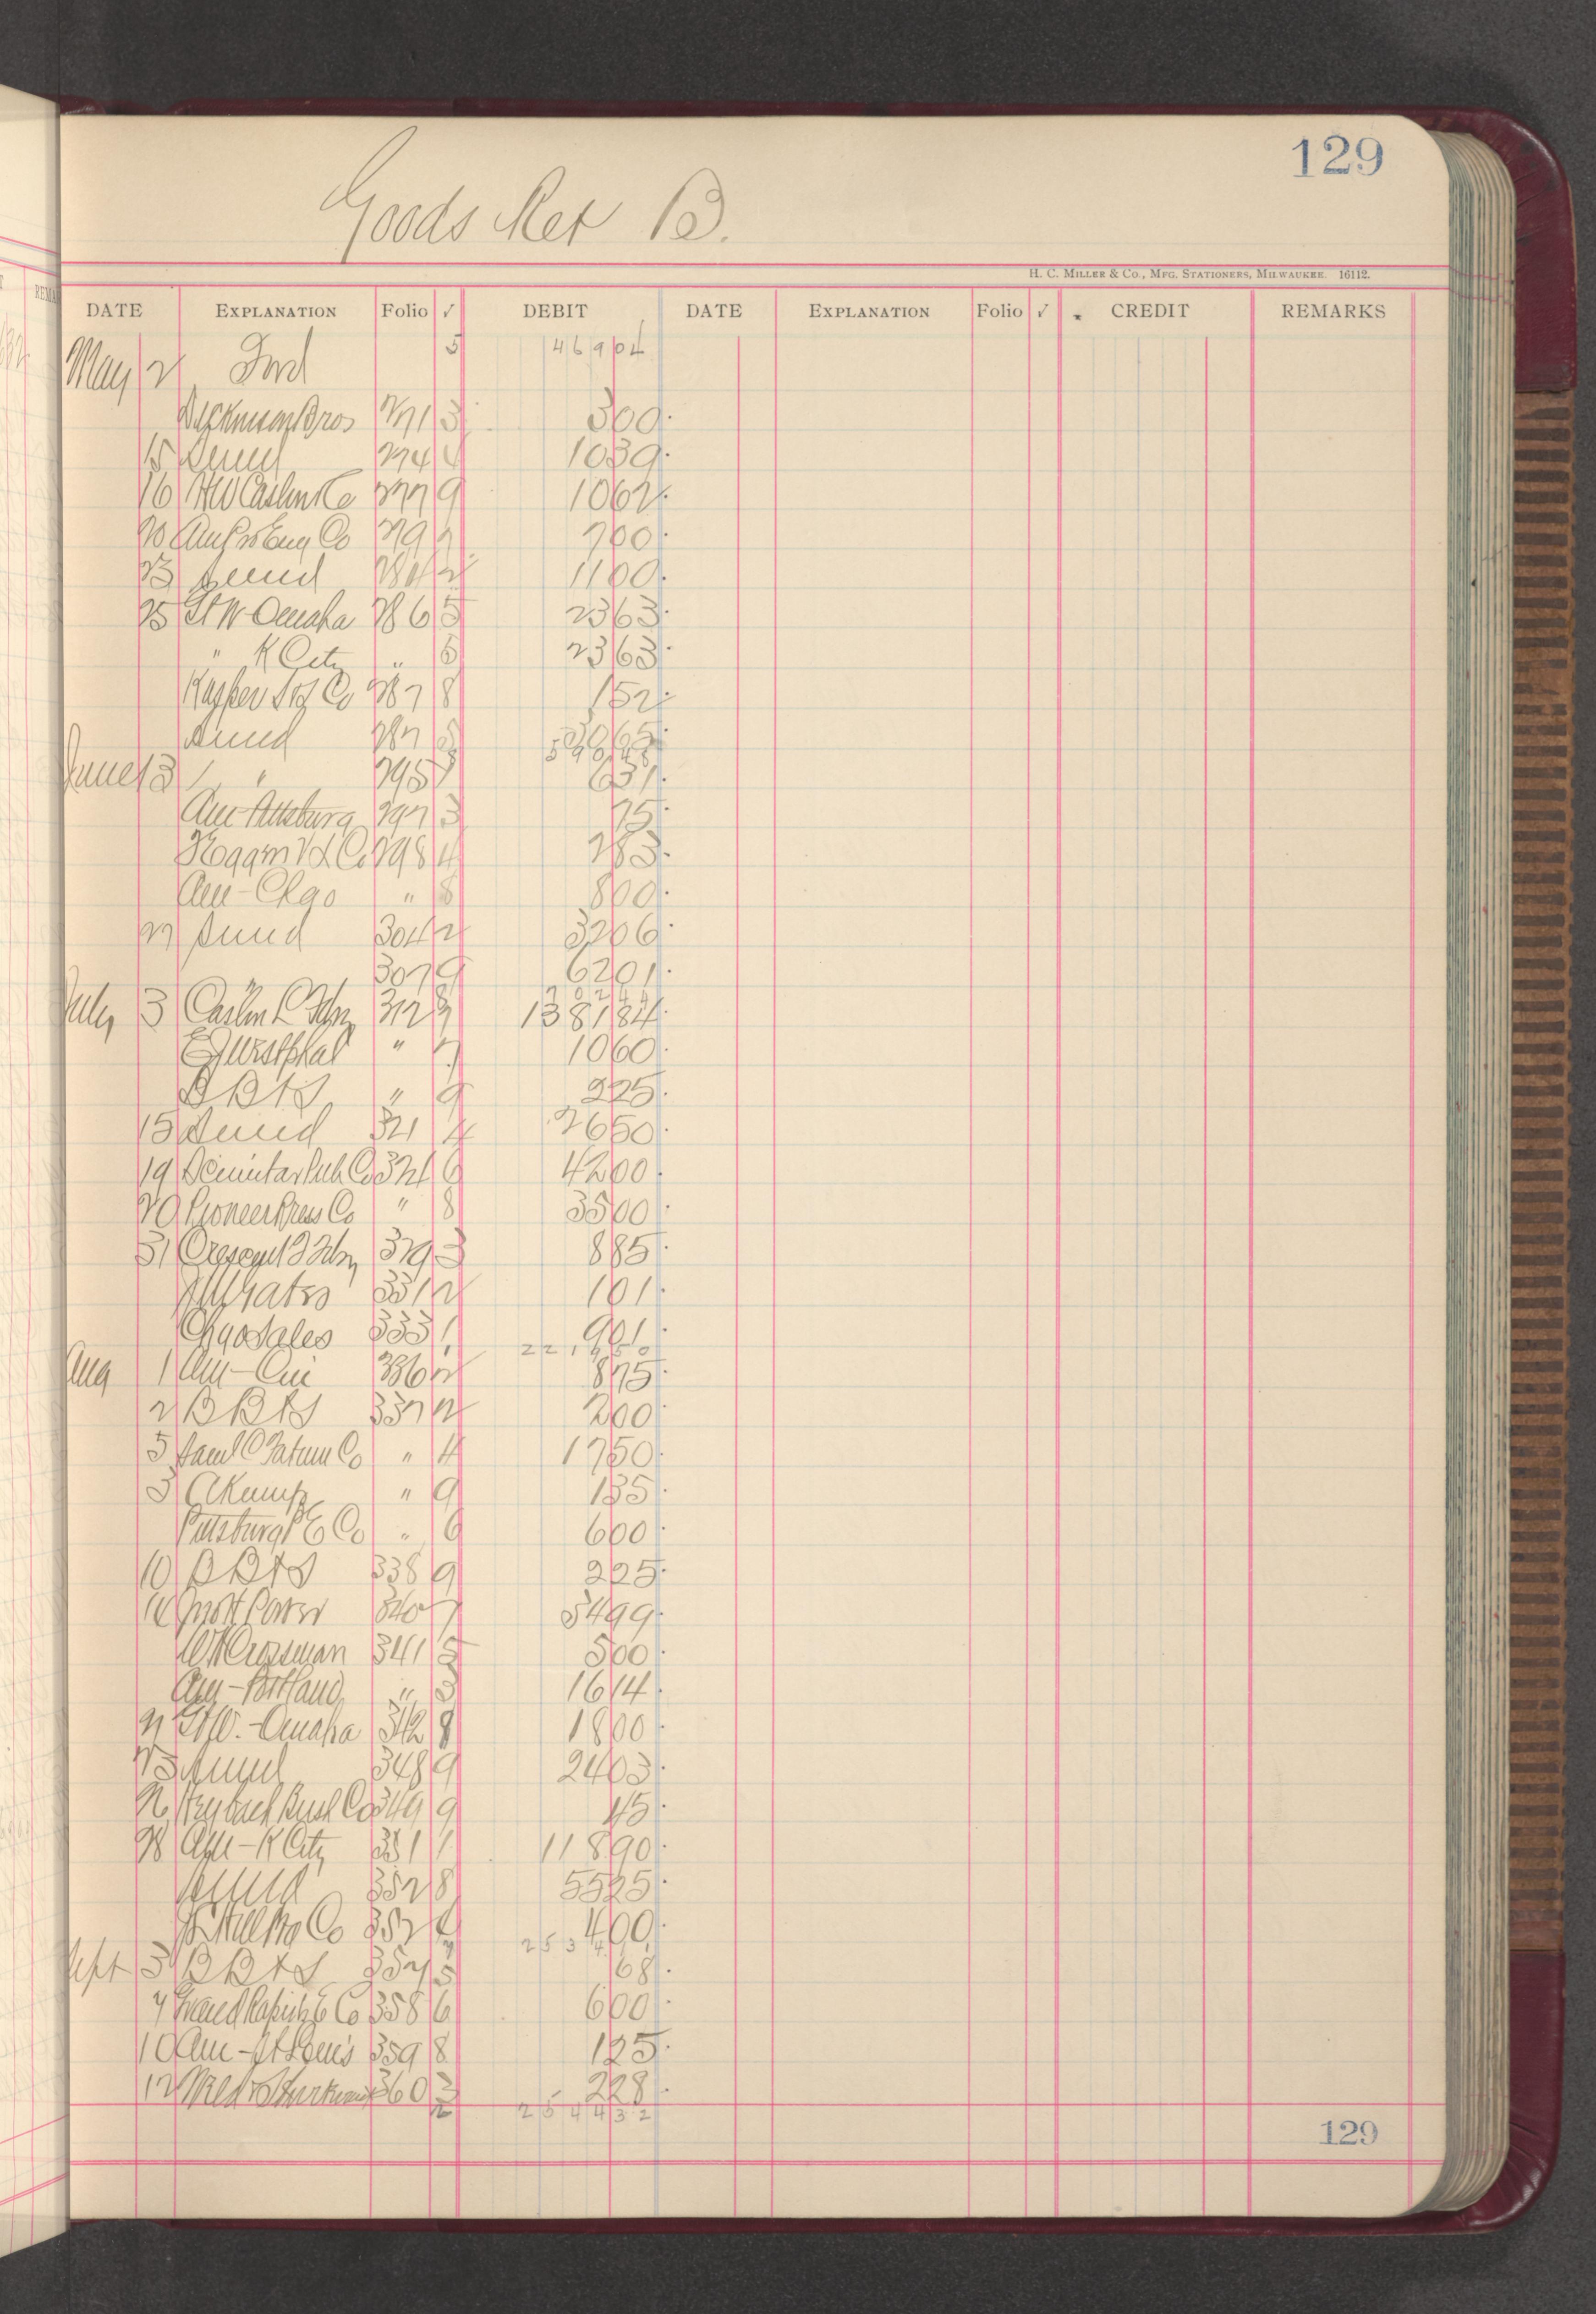 129
Goods Ret B.
H. C. Miller & Co., Mfg. Stationers, Milwaukee. 16112.
DATE Explanation Folio ✓ DEBIT DATE Explanation Folio ✓ CREDIT REMARKS
May 2 Fwd 5 46904
Dickinson Bros 271 3 300
15 Sund 274 4 1039
16 HW Caslon & Co 277 9 1062
20 Co 279 700
23 Sund 1100
25 GtW Omaha 286 5 2363
" K City " 5 2363
Co 287 8 152
Sund 287 3065
59048
June 13 " 295 631
Am Pittsburg 297 3 75
Co 298 4 283
Am - Chgo " 8 800
27 Sund 304 2 3206
307 9 6201
July 3 Caslon 312 138184
EJ Westphal " 1060
BB&S " 9 225
15 Sund 321 4 2650
19 Scimitar Pub Co 324 6 4200
20 Pioneer Press Co " 8 3500
31 Crescent 329 3 885
331 2 101
Chgo Sales 333 1 901
Aug 1 Am - Cin 336 2 875
2 BB&S 337 2 200
3 Saml C Tatum Co " 4 1750
3 A Kump " 9 135
Pittsburg P E Co " 6 600
10 BB&S 338 9 225
340 7 5499
Crossman 341 5 500
Am - Portland " 3 1614
21 GtW. - Omaha 342 8 1800
23 Sund 348 9 2403
26 Co 349 9 45
28 Am - K City 351 1 11890
Sund 352 8 5525
Co 352 400
Sept 3 BB&S 357 5 68
7 Grand Rapids E Co 358 6 600
10 Am - St Louis 359 8 125
12 360 3 228
2 254432
129